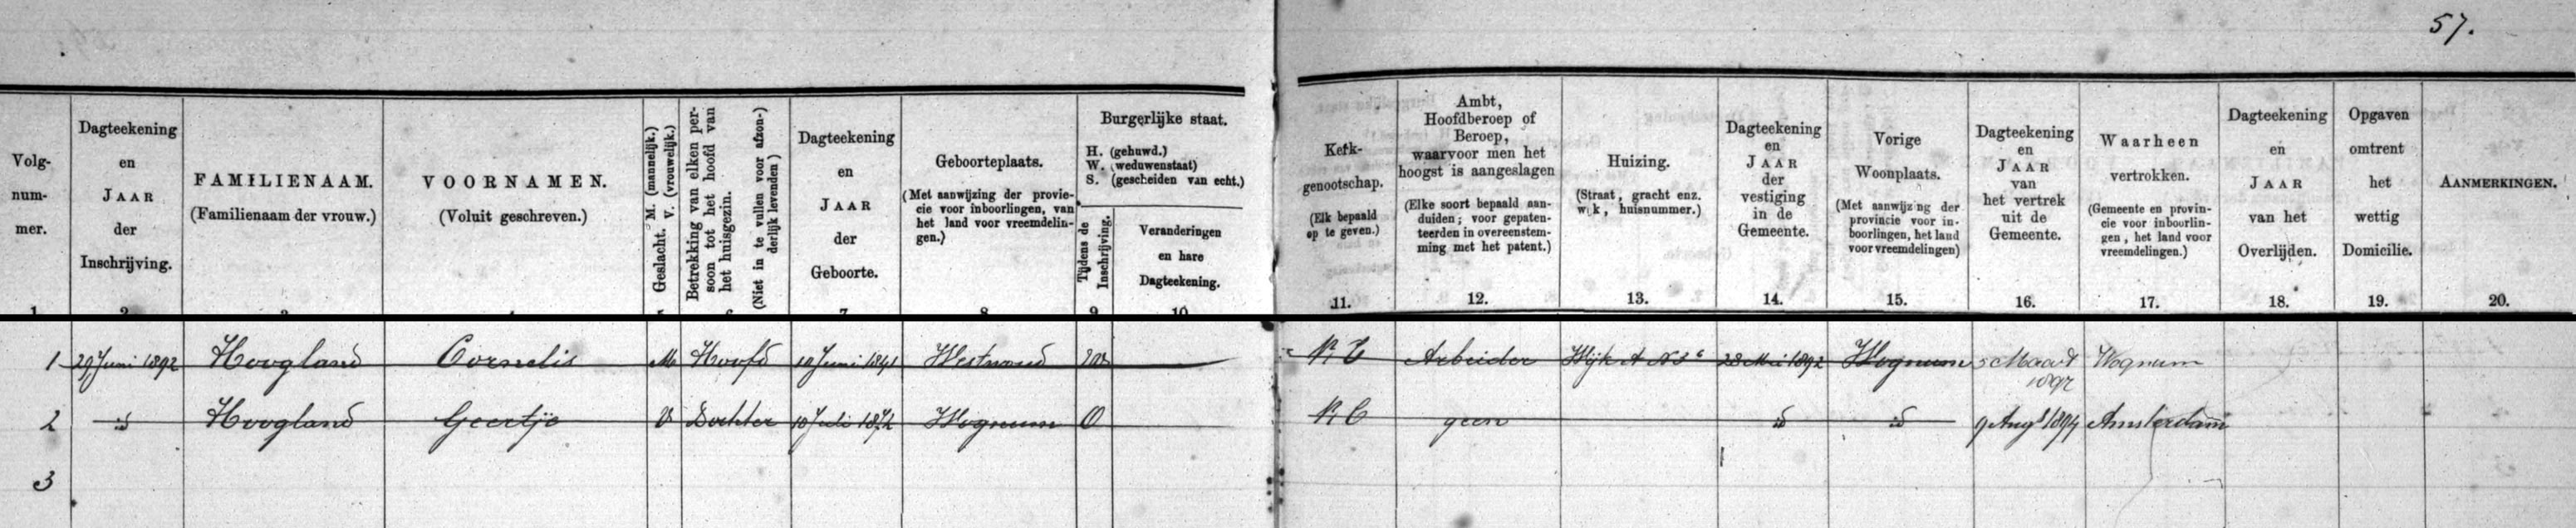 57.
Volg-
num-
mer.
1.
Dagteekening
en
JAAR
der
Inschrijving.
2
FAMILIENAAM.
(Familienaam der vrouw.)
3
VOORNAMEN.
(Voluit geschreven.)
4
Geslacht. M. (mannelijk.)
V. (vrouwelijk.)
5
Betrekking van elken per-
soon tot het hoofd van
het huisgezin.
(Niet in te vullen voor afzon-
derlijk levenden)
6
Dagteekening
en
JAAR
der
Geboorte.
7
Geboorteplaats.
(Met aanwijzing der provin-
cie voor inboorlingen, van
het land voor vreemdelin-
gen.)
8
Burgerlijke staat.
H. (gehuwd.)
W. (weduwenstaat)
S. (gescheiden van echt.)
Tijdens de
Inschrijving.
9
Veranderingen
en hare
Dagteekening.
10
Kerk-
genootschap.
(Elk bepaald
op te geven.)
11.
Ambt,
Hoofdberoep of
Beroep,
waarvoor men het
hoogst is aangeslagen
(Elke soort bepaald aan-
duiden; voor gepaten-
teerden in overeenstem-
ming met het patent.)
12.
Huizing.
(Straat, gracht enz.
wijk, huisnummer.)
13.
Dagteekening
en
JAAR
der
vestiging
in de
Gemeente.
14.
Vorige
Woonplaats.
(Met aanwijzing der
provincie voor in-
boorlingen, het land
voor vreemdelingen)
15.
Dagteekening
en
JAAR
van
het vertrek
uit de
Gemeente.
16.
Waarheen
vertrokken.
(Gemeente en provin-
cie voor inboorlin-
gen, het land voor
vreemdelingen.)
17.
Dagteekening
en
JAAR
van het
Overlijden.
18.
Opgaven
omtrent
het
wettig
Domicilie.
19.
AANMERKINGEN.
20.
1 29 Juni 1892 Hoogland Cornelis M Hoofd Juni 1841 Westwoud W R C Arbeider Wijk A N 3 28 Mei 1892 Wognum 5 Maart 1897 Wognum
2 id Hoogland Geertje V Dochter 10 Juli 1872 Wognum O R C geen id id 9 Aug 1894 Amsterdam
3